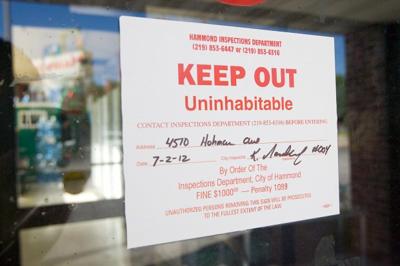 HAMMOND INSPECTIONS DEPARTMENT
(219) 853-6447 or (219) 853-6316
KEEP OUT
Uninhabitable
CONTACT INSPECTIONS DEPARTMENT (219-853-6316) BEFORE ENTERING
Address 4510 Hohman Ave
Date 7-2-12 City Inspector
By Order Of The
Inspections Department, City of Hammond
FINE $1000 — Penalty 1099
UNAUTHORIZED PERSONS REMOVING THIS SIGN WILL BE PROSECUTED
TO THE FULLEST EXTENT OF THE LAW.